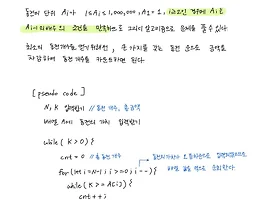 동전의 단위 Ai가 1≤Ai≤1,000,000, A1=1, i≥2인 경우에 Ai는
Ai-1의 배수의 조건을 만족하므로 그리디 알고리즘으로 문제를 풀 수 있다.
최소의 동전개수를 얻기 위해선, 큰 가치를 갖는 동전 순으로 금액을
차감하며 동전 개수를 카운트하면 된다.
[pseudo code]
N, K 입력받기 // 동전 개수, 총금액
배열 A에 동전의 가치 입력받기
while(K>0){
cnt = 0 // 총 동전 개수
for(int i=N-1; i>=0; i--){
동전의 가치가 오름차순으로 입력되었으므로
배열 값을 역으로 순회한다
while(K>=A[i]){
cnt++;